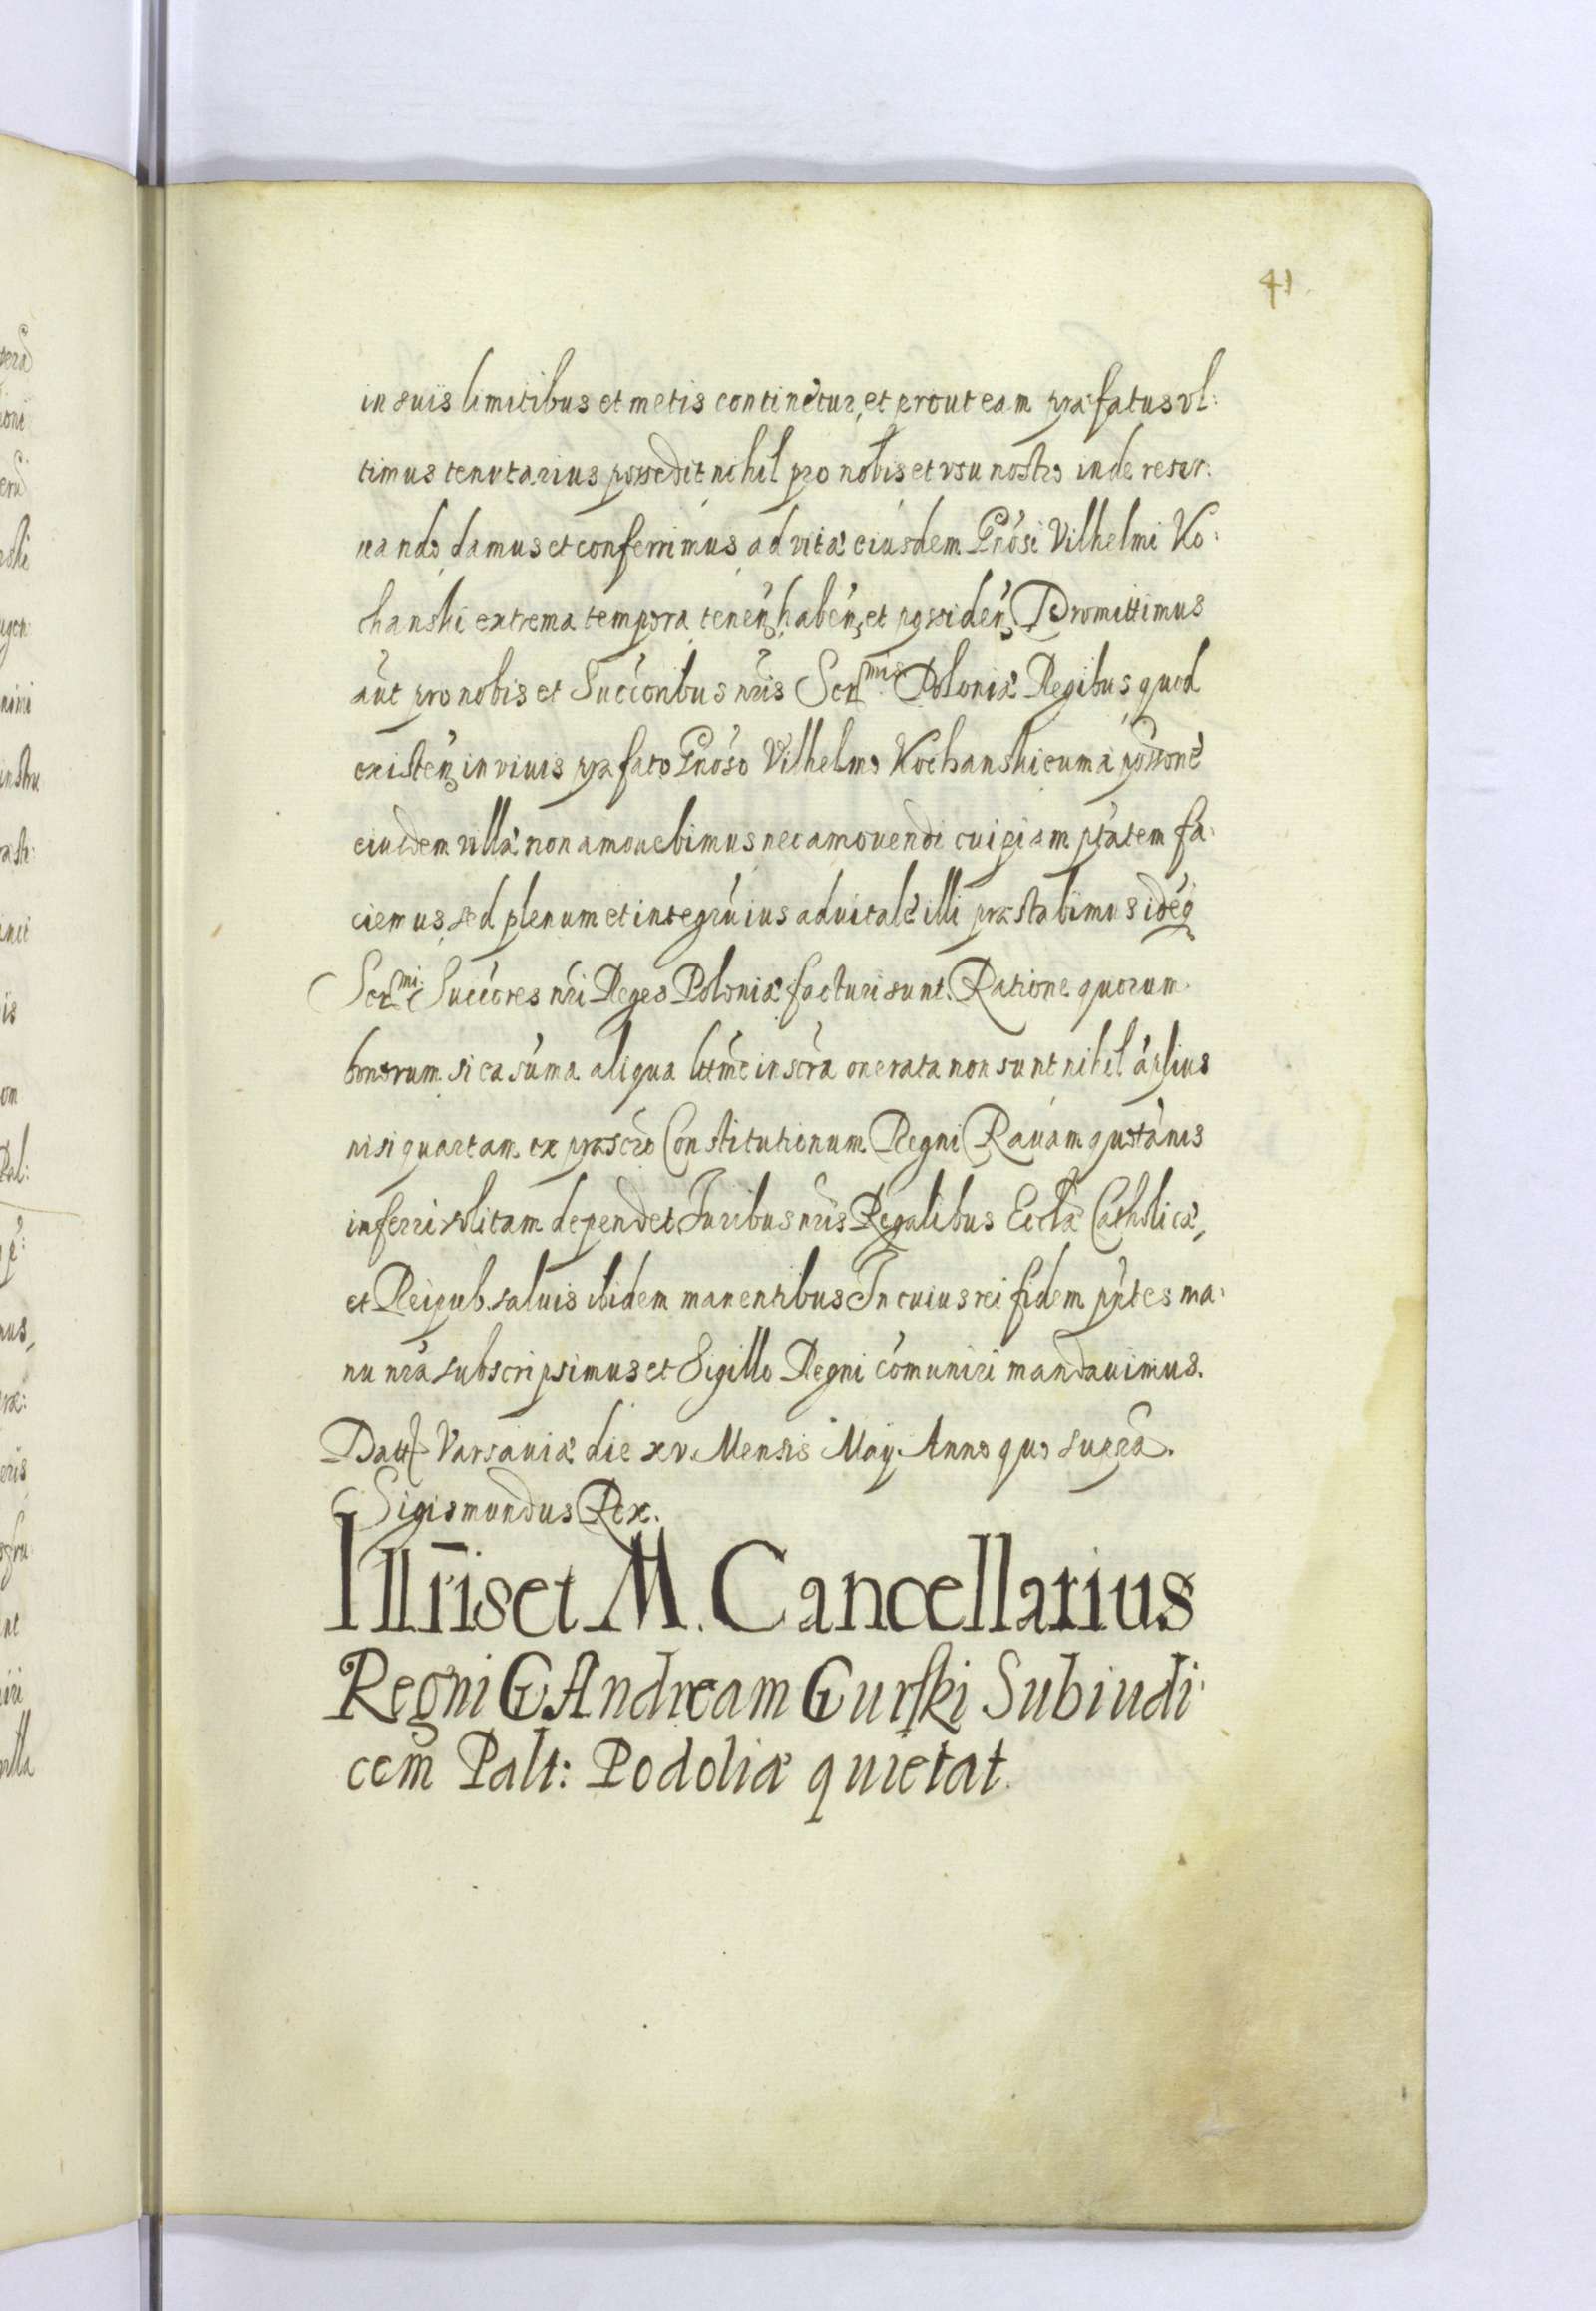 41
in suis limitibus et metis continètur, et prout eam præfatus vl:
timus tenutarius possedit nihil pro nobis et vsu nostro inde reser:
uando, damus et conferrimus ad vitæ eiusdem Gnōsi Vilhelmi Ko:
chanski extrema tempora tenēn, habēn, et possidēn, Promittimus
aūt pro nobis et Succōribus nr̄is Serᵐⁱˢ Poloniæ Regibus quod
existēn in viuis præfato Gnōso Vilhelmo Kochanski eum à possonē
eiusdem villæ non amouebimus nec amouendi cuipiam ptātem fa:
ciemus, sed plenum et integrū ius aduitalē illi præstabimus idēq
Serᵐⁱ Succōres nr̄i Reges Poloniæ facturi sunt. Ratione quorum
bonorum si ea sūma aliqua lttmē inscrā onerata non sunt nihil āplius
nisi quartam ex præscrō Constitutionum Regni Rauam quotānis
inferri solitam dependet Iuribus nr̄is Regalibus Ecclæ̃ Catholicæ,
et Reipub. saluis ibidem manentibus In cuius rei fidem pn̄tes ma:
nu nrā subscripsimus et Sigillo Regni cōmuniri mandauimus.
Datt Varsauiæ die xv. Mensis Maÿ. Anno quo supra.
Sigismundus Rex.
Illr̄is et M. Cancellarius
Regni G Andream Gurski Subiudi:
cem Palt: Podoliæ quietat.